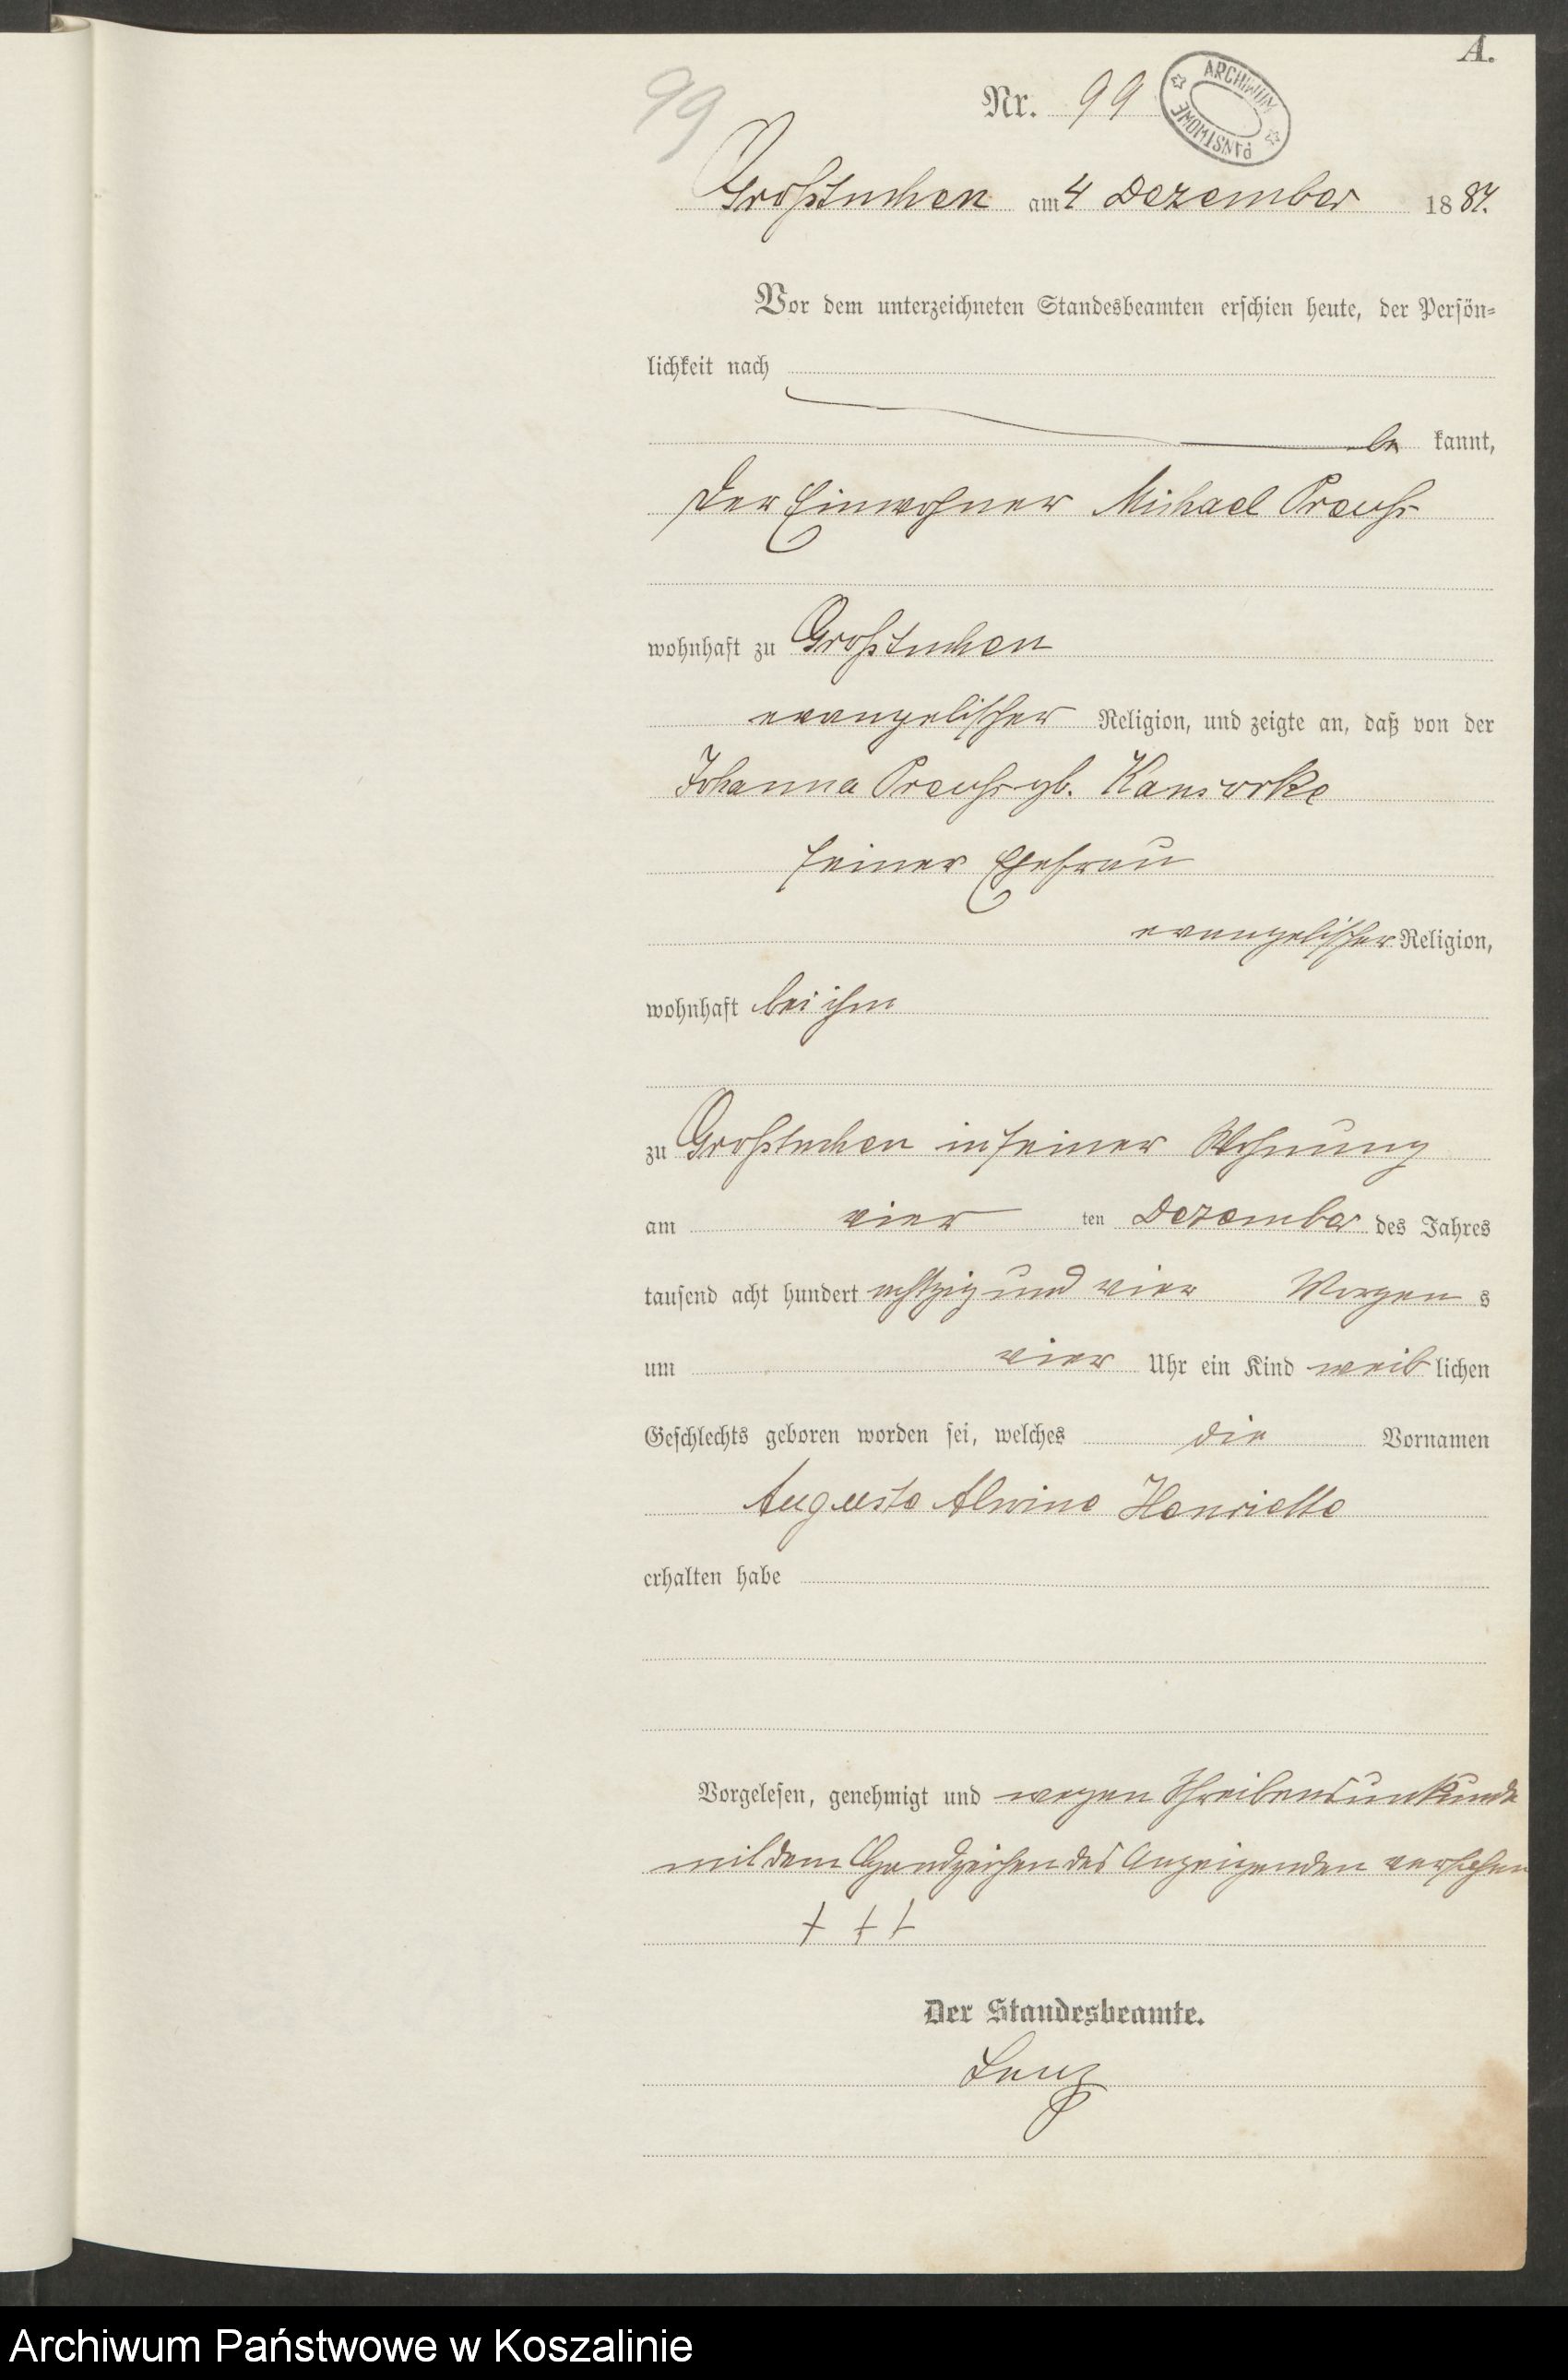 A.
99
Nr. 99
ARCHIWUM PAŃSTWOWE
Großtuchen am 4 Dezember 1884.
Vor dem unterzeichneten Standesbeamten erschien heute, der Persön-
lichkeit nach
be kannt,
der Einwohner Michael Preuß
wohnhaft zu Großtuchen
evangelischer Religion, und zeigte an, daß von der
Johanna Preuß gb. Kansorke
seiner Ehefrau
evangelischer Religion,
wohnhaft bei ihm
zu Großtuchen in seiner Wohnung
am vier ten Dezember des Jahres
tausend acht hundert achtzig und vier Morgen s
um vier Uhr ein Kind weib lichen
Geschlechts geboren worden sei, welches die Vornamen
Auguste Alwine Henriette
erhalten habe
Vorgelesen, genehmigt und wegen Schreibensunkunde
mit dem Handzeichen des Anzeigenden versehen
+ + +
Der Standesbeamte.
Lenz
Archiwum Państwowe w Koszalinie